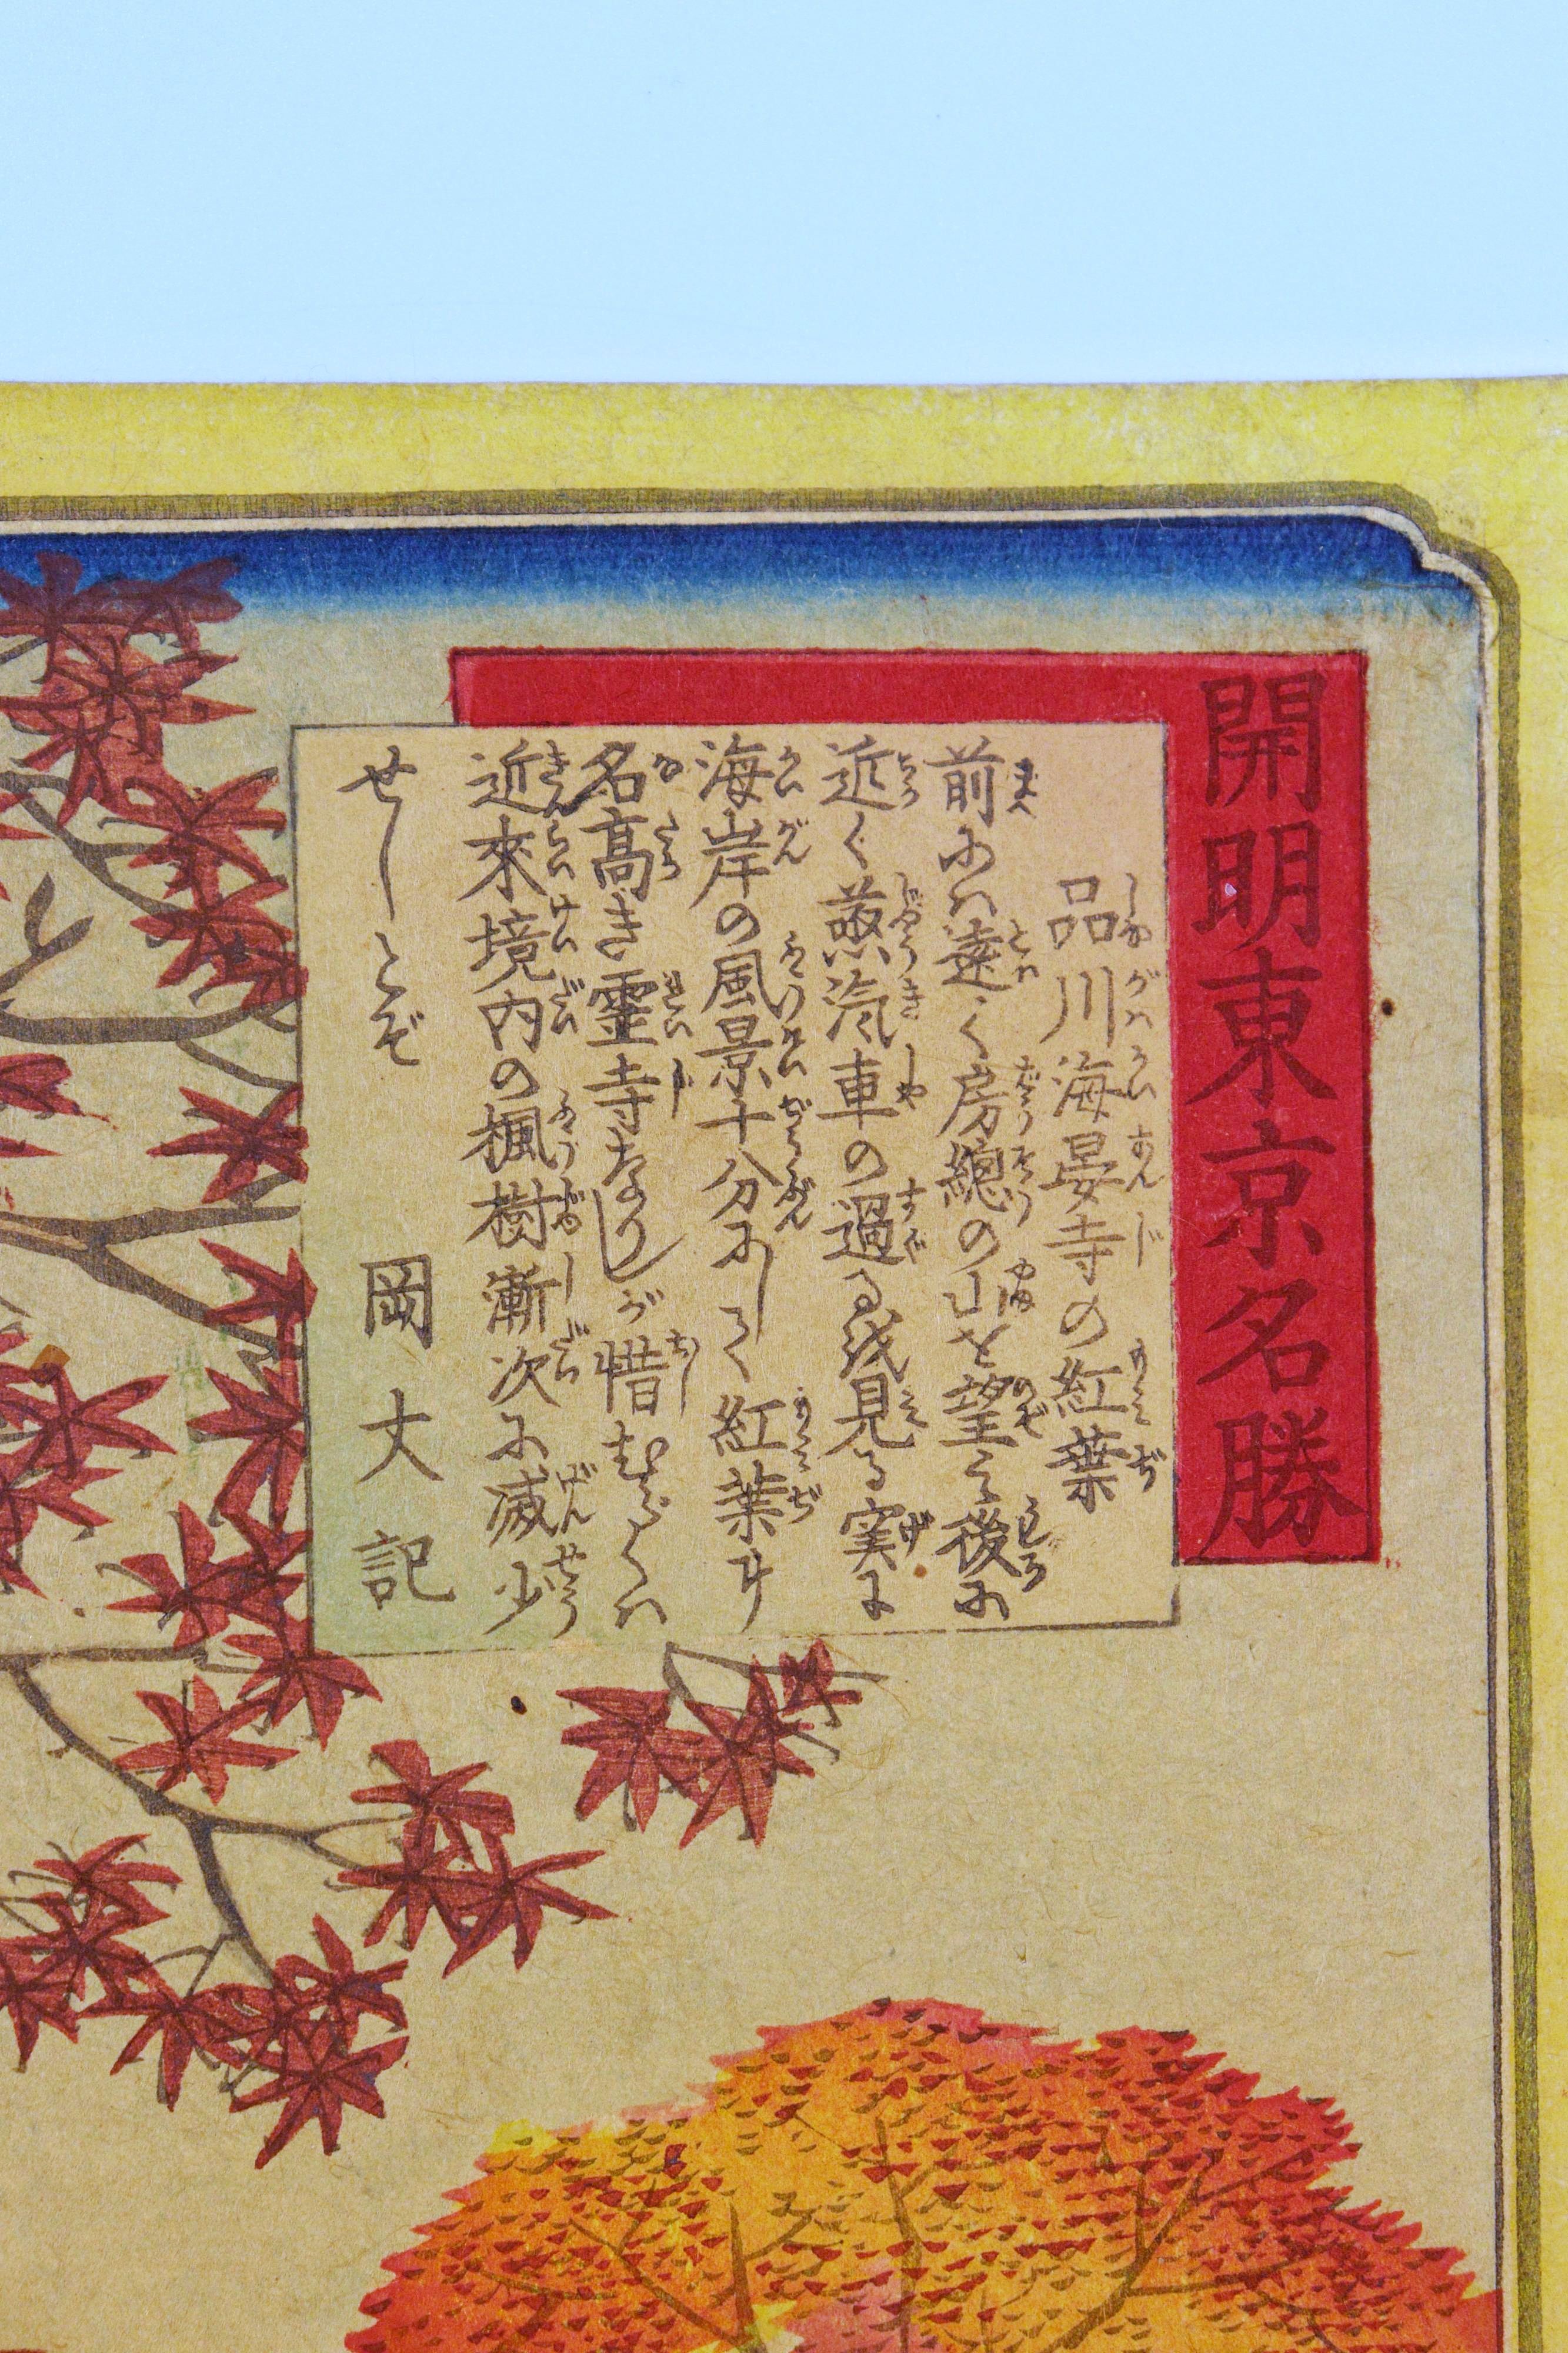 開明東京名勝
品川海晏寺の紅葉
前にハ遠く房總の山を望ミ後に
近く蒸汽車の過る越見る実に
海岸の風景十分にして紅葉に
名高き靈寺なりしが惜むらくハ
近來境内の楓樹漸次に减少
せしとぞ
岡丈記